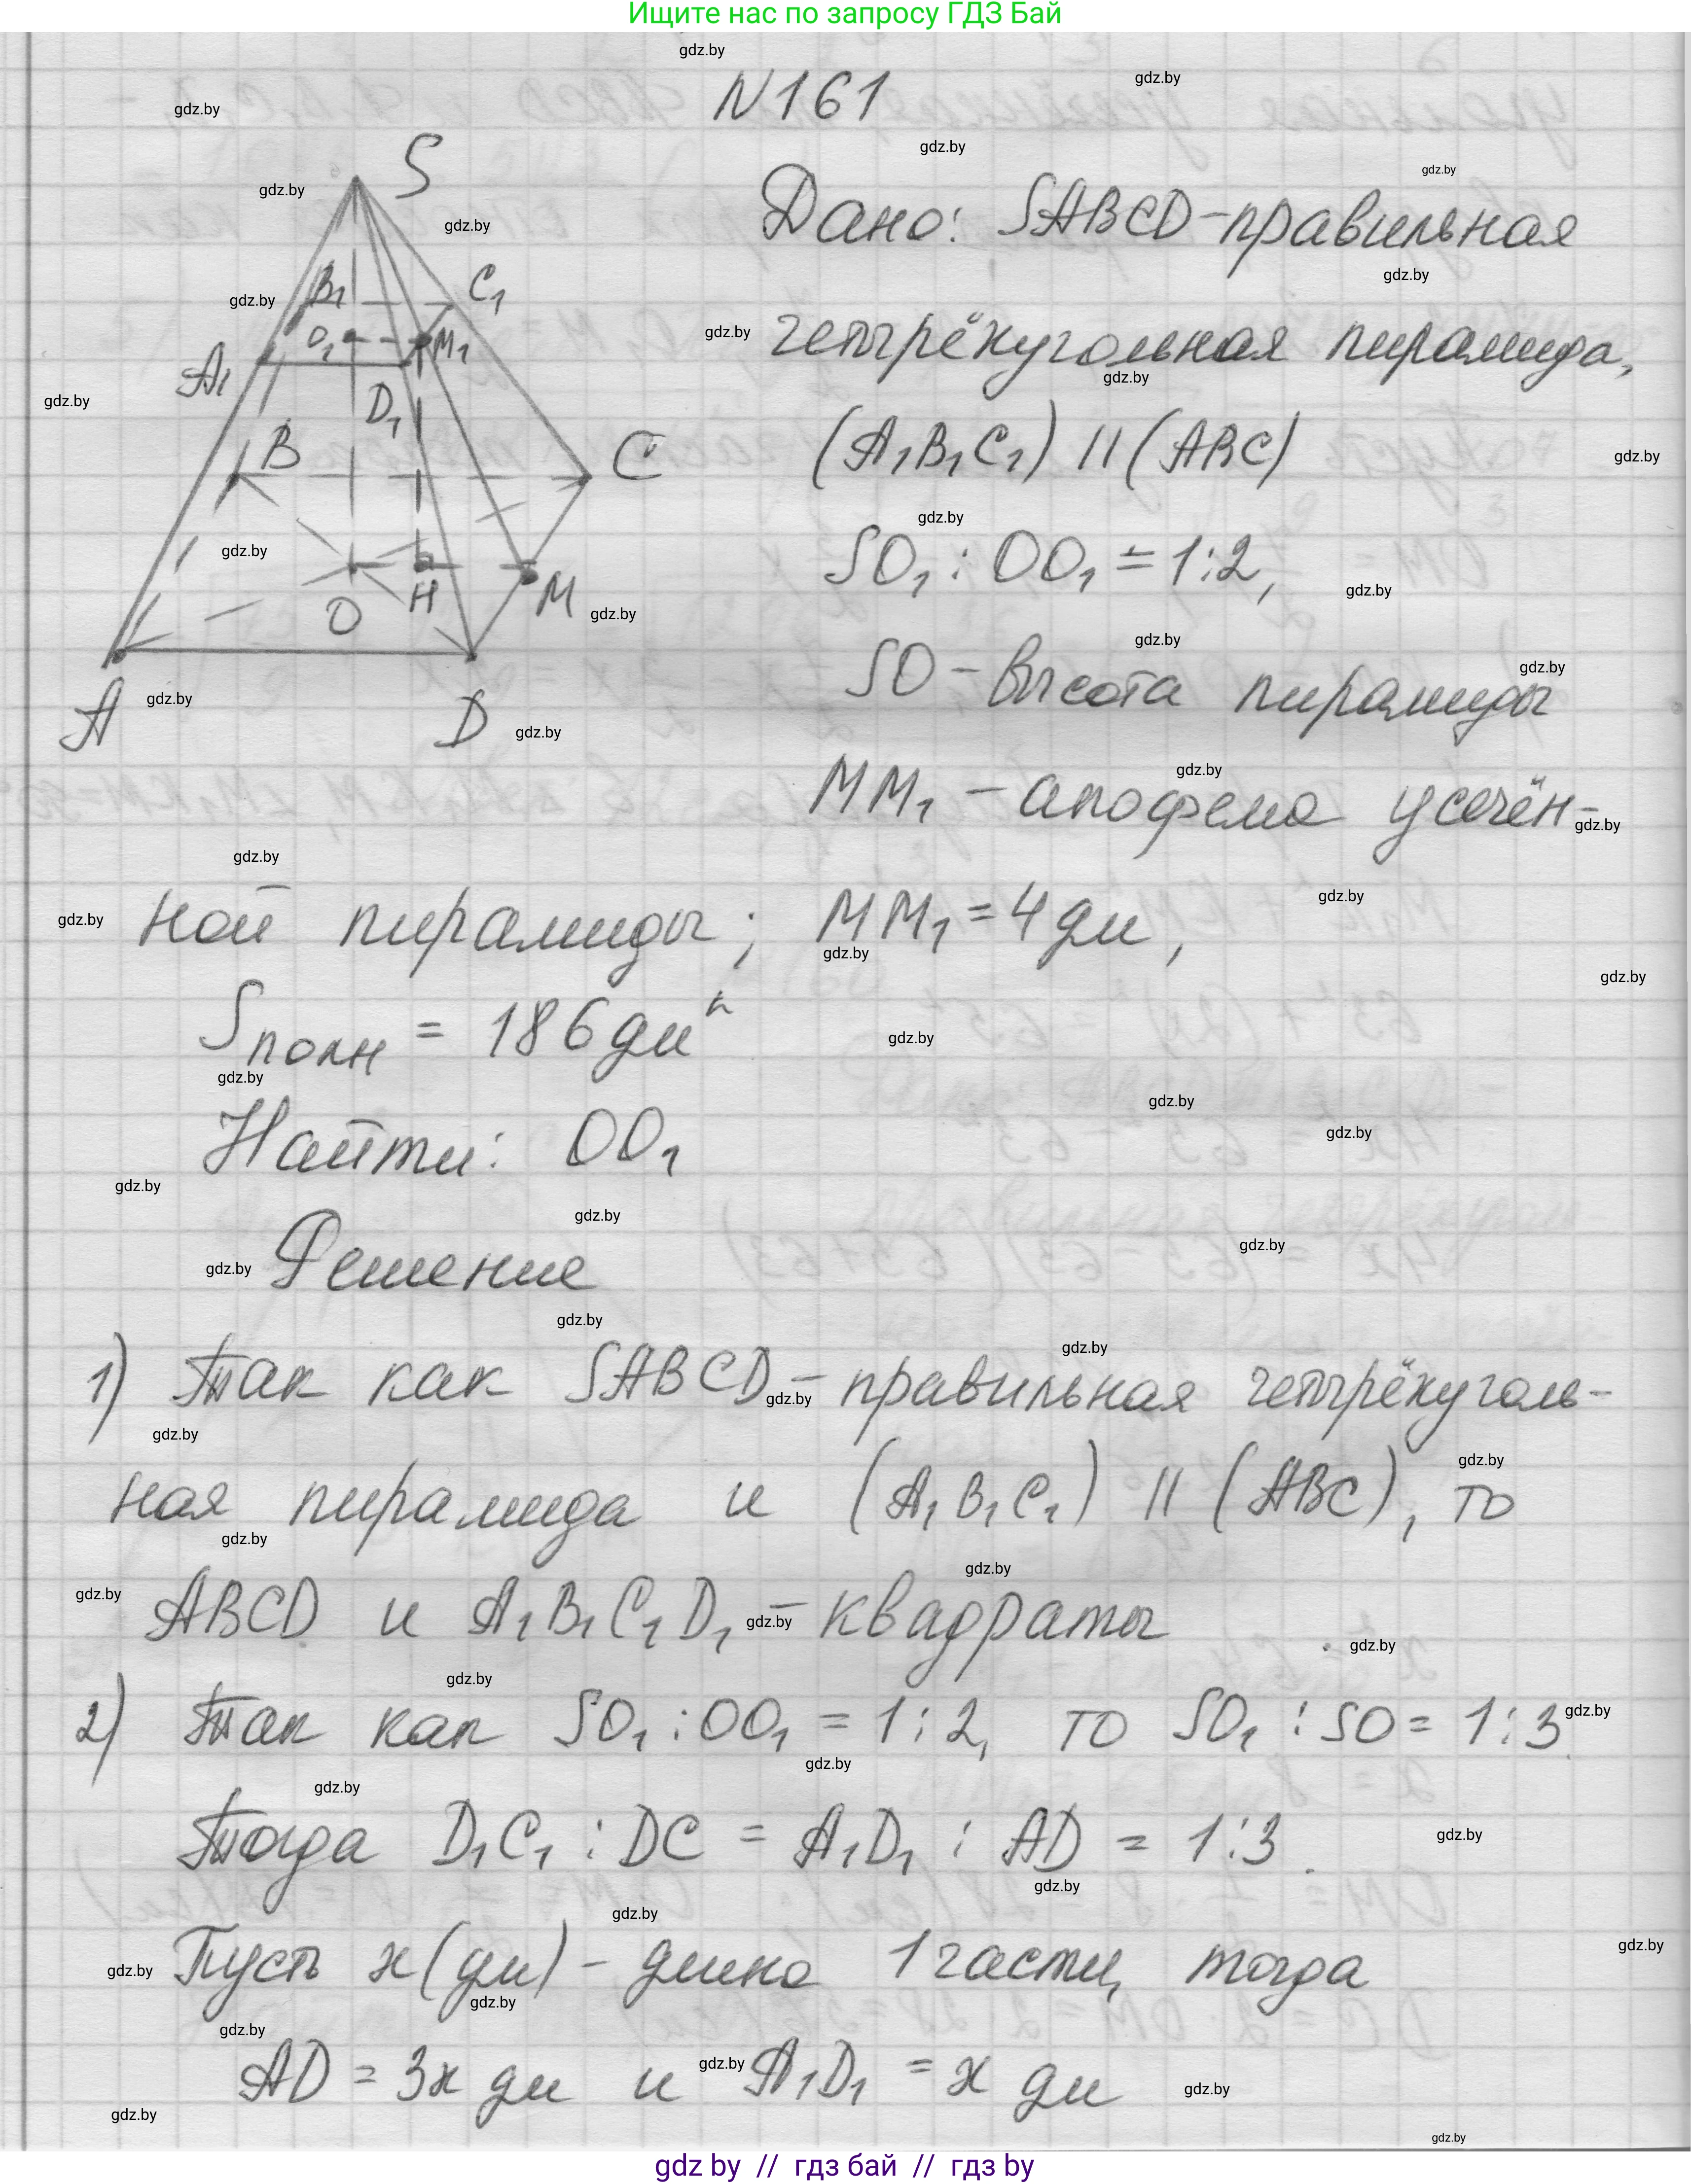 Ищите нас по запросу ГДЗ Бай
N161
Дано: SABCD - правильная
четырёхугольная пирамида,
(A₁B₁C₁) || (ABC)
SO₁ : OO₁ = 1:2,
SO - высота пирамиды
MM₁ - апофема усечён-
ной пирамиды; MM₁ = 4 дм,
Sполн = 186 дм²
Найти: OO₁
Решение
1) Так как SABCD - правильная четырёхуголь-
ная пирамида и (A₁B₁C₁) || (ABC), то
ABCD и A₁B₁C₁D₁ - квадраты
2) Так как SO₁ : OO₁ = 1:2, то SO₁ : SO = 1:3.
Тогда D₁C₁ : DC = A₁D₁ : AD = 1:3.
Пусть x (дм) - длина 1 части, тогда
AD = 3x дм и A₁D₁ = x дм
S
B₁
C₁
O₁
M₁
A₁
D₁
B
C
O
H
M
A
D
gdz.by
gdz by // гдз бай // гдз by